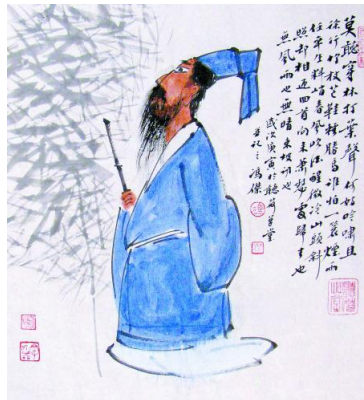 莫聽穿林打葉聲何妨吟嘯且
徐行竹杖芒鞋輕勝馬誰怕一蓑煙雨
任平生料峭春風吹酒醒微冷山頭斜
照却相迎回首向來蕭瑟處歸去也
無風雨也無晴東坡詞也
歲次庚寅於聽荷草堂
記之馮傑